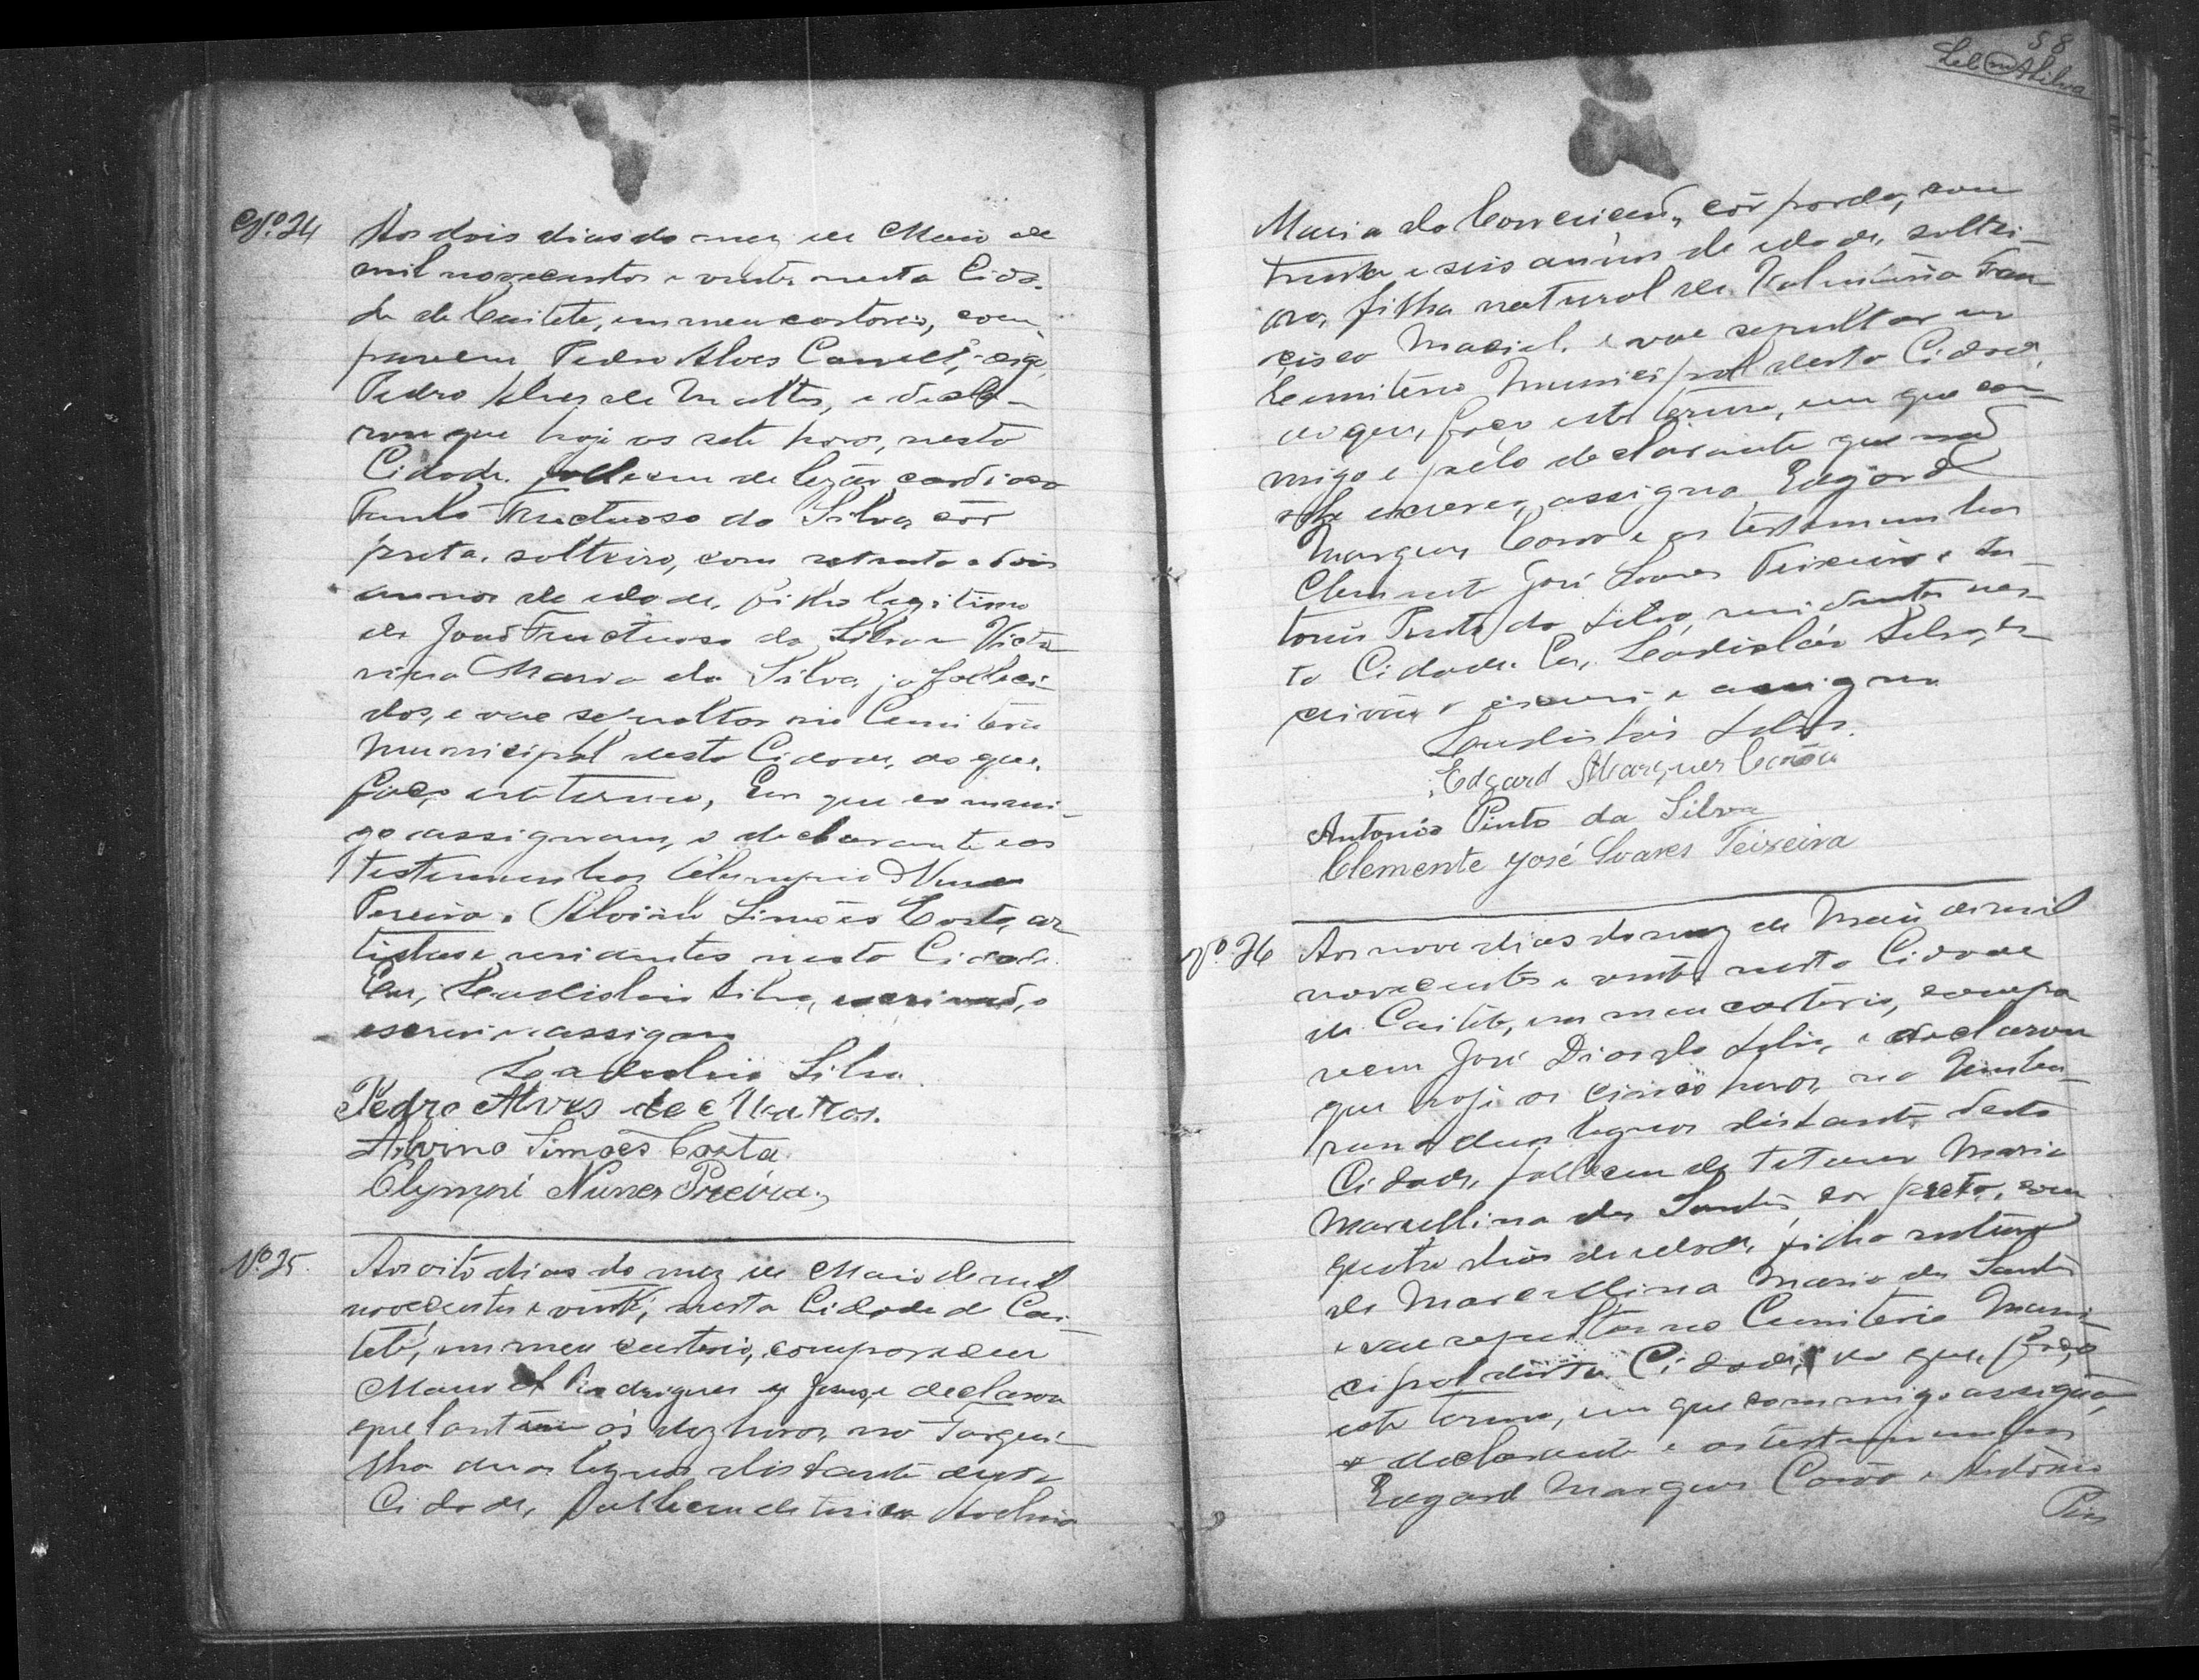 Nº 24
Aos dois dias do mez de Maio de
mil novecentos e vinte nesta Cida-
de de Caiteté, em meu cartorio, com-
pareceu Pedro Alves digo,
Pedro Alves de Mattos, e decla-
rou que hoje as sete horas, nesta
Cidade falleceu de lezão cardiaca
Paulo Fructuoso da Silva, côr
preta, solteiro, com setenta e dois
annos de edade, filho legitimo
de João Fructuoso da Silva e Victo-
rina Maria da Silva, já falleci-
dos, e vae sepultar no Cemiterio
Municipal desta Cidade, do que,
faço este termo, em que commi-
go assignam, o declarante e as
testemunhas Olympio Nunes
Pereira e Alvino Simões Costa, ar-
tistas e residentes nesta Cidade.
Eu, Leudislau Silva, escrivão, o
escrevi e assigno
Leudislau Silva.
Pedro Alves de Mattos.
Alvino Simões Costa
Olympio Nunes Pereira,
Nº 25.
Aos oito dias do mez de Maio de mil
novecentos e vinte, nesta Cidade de Cai-
teté, em meu cartorio, compareceu
Manoel Rodrigues de Jesus, e declarou
que hontem ás dez horas, no
duas leguas distante desta
Cidade, falleceu de
58
Maria da Conceição, côr parda, com
trinta e seis annos de edade, soltei-
ra, filha natural de Fran-
cisca Maciel, e vae sepultar no
Cemiterio Municipal desta Cidade,
do que, faço este termo, em que com-
migo e pelo declarante que não
sabe escrever, assigna Edgard
Marques Cotrim e as testemunhas
Clemente José Soares Teixeira e An-
tonio Pinto da Silva, residentes nes-
ta Cidade. Eu, Leudislau Silva, es-
crivão o escrevi e assigno
Leudislau Silva.
Edgard Marques
Antonio Pinto da Silva
Clemente José Soares Teixeira
Nº 26
Aos nove dias do mez de Maio de mil
novecentos e vinte nesta Cidade
de Caiteté, em meu cartorio, compa-
receu José Dias da Silva, e declarou
que hoje as cinco horas, no
duas leguas distante desta
Cidade, falleceu de tetano Maria
Marcellina dos Santos, côr preta, com
quatro dias de edade, filha natural
de Marcellina Maria dos Santos
e vae sepultar no Cemiterio Muni-
cipal desta Cidade, do que, faço
este termo, em que commigo assigna,
o declarante e as testemunhas
Edgard Marques e Antonio
Pin